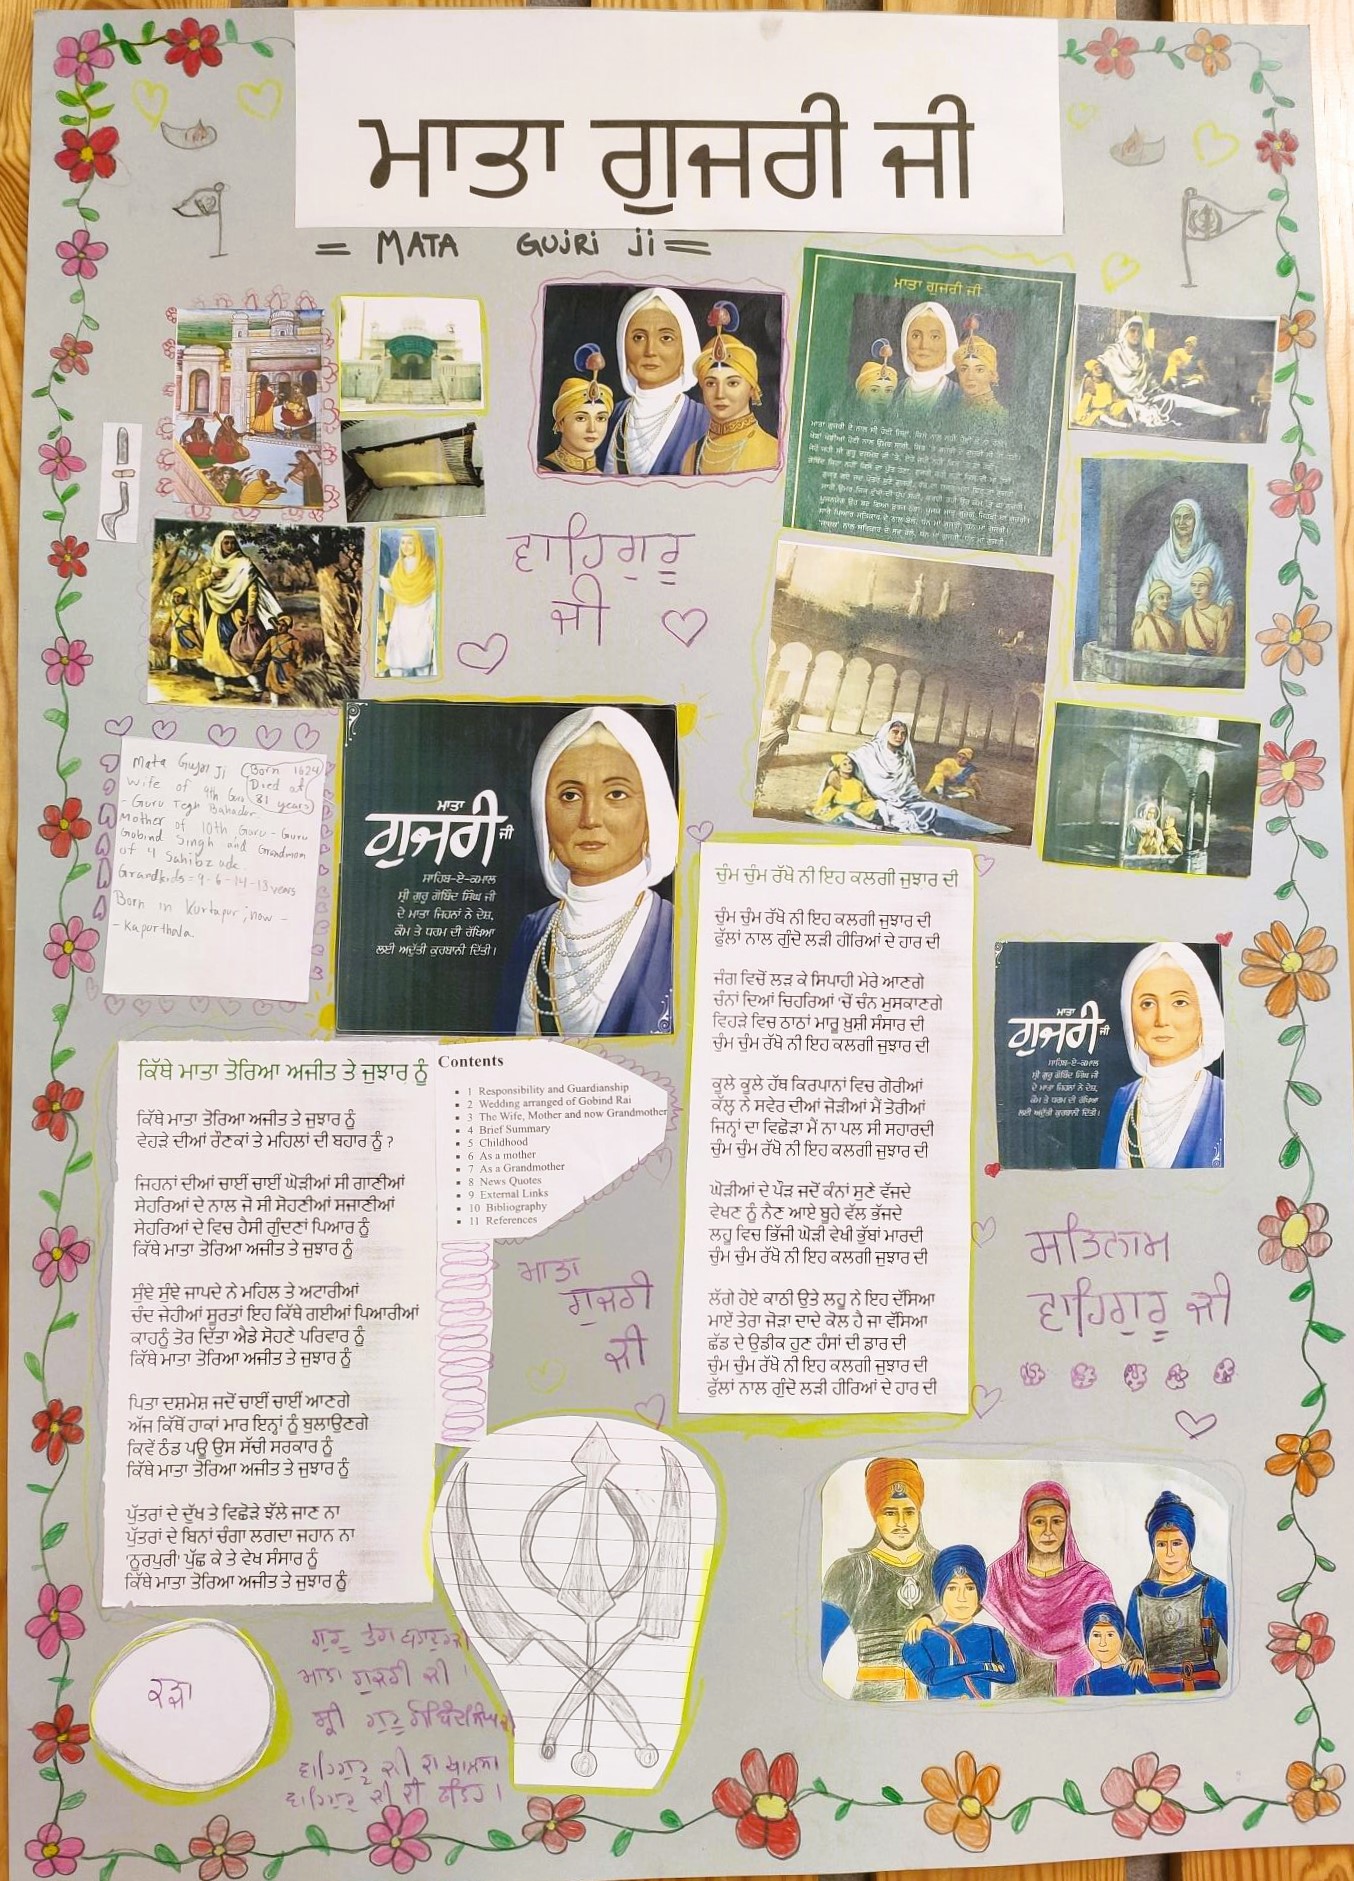 ਮਾਤਾ ਗੁਜਰੀ ਜੀ
= MATA GUJRI Ji =
ਮਾਤਾ ਗੁਜਰੀ ਜੀ
ਵਾਹਿਗੁਰੂ
ਜੀ
Mata Gujri Ji
Born 1624
Died at
81 years
Wife of 9th Guru
- Guru Tegh Bahador
Mother of 10th Guru - Guru
Gobind Singh and Grandmom
of 4 Sahibzade.
Grandkids = 9-6-14-18 years
Born in Kurtapur; now -
- Kapurthala.
ਮਾਤਾ
ਗੁਜਰੀ ਜੀ
ਸਾਹਿਬ-ਏ-ਕਮਾਲ
ਸ੍ਰੀ ਗੁਰੂ ਗੋਬਿੰਦ ਸਿੰਘ ਜੀ
ਦੇ ਮਾਤਾ ਜਿਹਨਾਂ ਨੇ ਦੇਸ਼,
ਕੌਮ ਤੇ ਧਰਮ ਦੀ ਰੱਖਿਆ
ਲਈ ਅਦੁੱਤੀ ਕੁਰਬਾਨੀ ਦਿੱਤੀ।
ਚੁੰਮ ਚੁੰਮ ਰੱਖੋ ਨੀ ਇਹ ਕਲਗੀ ਜੁਝਾਰ ਦੀ
ਚੁੰਮ ਚੁੰਮ ਰੱਖੋ ਨੀ ਇਹ ਕਲਗੀ ਜੁਝਾਰ ਦੀ
ਫੁੱਲਾਂ ਨਾਲ ਗੁੰਦੋ ਲੜੀ ਹੀਰਿਆਂ ਦੇ ਹਾਰ ਦੀ
ਜੰਗ ਵਿਚੋਂ ਲੜ ਕੇ ਸਿਪਾਹੀ ਮੇਰੇ ਆਣਗੇ
ਚੰਨਾਂ ਦਿਆਂ ਚਿਹਰਿਆਂ 'ਚੋਂ ਚੰਨ ਮੁਸਕਾਣਗੇ
ਵਿਹੜੇ ਵਿਚ ਠਾਠਾਂ ਮਾਰੂ ਖ਼ੁਸ਼ੀ ਸੰਸਾਰ ਦੀ
ਚੁੰਮ ਚੁੰਮ ਰੱਖੋ ਨੀ ਇਹ ਕਲਗੀ ਜੁਝਾਰ ਦੀ
ਕੂਲੇ ਕੂਲੇ ਹੱਥ ਕਿਰਪਾਨਾਂ ਵਿਚ ਗੋਰੀਆਂ
ਕੱਲ੍ਹ ਨੇ ਸਵੇਰ ਦੀਆਂ ਜੋੜੀਆਂ ਮੈਂ ਤੋਰੀਆਂ
ਜਿਨ੍ਹਾਂ ਦਾ ਵਿਛੋੜਾ ਮੈਂ ਨਾ ਪਲ ਸੀ ਸਹਾਰਦੀ
ਚੁੰਮ ਚੁੰਮ ਰੱਖੋ ਨੀ ਇਹ ਕਲਗੀ ਜੁਝਾਰ ਦੀ
ਘੋੜੀਆਂ ਦੇ ਪੌੜ ਜਦੋਂ ਕੰਨਾਂ ਸੁਣੇ ਵੱਜਦੇ
ਵੇਖਣ ਨੂੰ ਨੈਣ ਆਏ ਬੂਹੇ ਵੱਲ ਭੱਜਦੇ
ਲਹੂ ਵਿਚ ਭਿੱਜੀ ਘੋੜੀ ਵੇਖੀ ਭੁੱਬਾਂ ਮਾਰਦੀ
ਚੁੰਮ ਚੁੰਮ ਰੱਖੋ ਨੀ ਇਹ ਕਲਗੀ ਜੁਝਾਰ ਦੀ
ਲੱਗੇ ਹੋਏ ਕਾਠੀ ਉਤੇ ਲਹੂ ਨੇ ਇਹ ਦੱਸਿਆ
ਮਾਏਂ ਤੇਰਾ ਜੋੜਾ ਦਾਦੇ ਕੋਲ ਹੈ ਜਾ ਵੱਸਿਆ
ਛੱਡ ਦੇ ਉਡੀਕ ਹੁਣ ਹੰਸਾਂ ਦੀ ਡਾਰ ਦੀ
ਚੁੰਮ ਚੁੰਮ ਰੱਖੋ ਨੀ ਇਹ ਕਲਗੀ ਜੁਝਾਰ ਦੀ
ਫੁੱਲਾਂ ਨਾਲ ਗੁੰਦੋ ਲੜੀ ਹੀਰਿਆਂ ਦੇ ਹਾਰ ਦੀ
ਮਾਤਾ
ਗੁਜਰੀ ਜੀ
ਸਾਹਿਬ-ਏ-ਕਮਾਲ
ਸ੍ਰੀ ਗੁਰੂ ਗੋਬਿੰਦ ਸਿੰਘ ਜੀ
ਦੇ ਮਾਤਾ ਜਿਹਨਾਂ ਨੇ ਦੇਸ਼,
ਕੌਮ ਤੇ ਧਰਮ ਦੀ ਰੱਖਿਆ
ਲਈ ਅਦੁੱਤੀ ਕੁਰਬਾਨੀ ਦਿੱਤੀ।
ਕਿੱਥੇ ਮਾਤਾ ਤੋਰਿਆ ਅਜੀਤ ਤੇ ਜੁਝਾਰ ਨੂੰ
ਕਿੱਥੇ ਮਾਤਾ ਤੋਰਿਆ ਅਜੀਤ ਤੇ ਜੁਝਾਰ ਨੂੰ
ਵੇਹੜੇ ਦੀਆਂ ਰੌਣਕਾਂ ਤੇ ਮਹਿਲਾਂ ਦੀ ਬਹਾਰ ਨੂੰ ?
ਜਿਹਨਾਂ ਦੀਆਂ ਚਾਈਂ ਚਾਈਂ ਘੋੜੀਆਂ ਸੀ ਗਾਣੀਆਂ
ਸੇਹਰਿਆਂ ਦੇ ਨਾਲ ਜੋ ਸੀ ਸੋਹਣੀਆਂ ਸਜਾਣੀਆਂ
ਸੇਹਰਿਆਂ ਦੇ ਵਿਚ ਹੈਸੀ ਗੁੰਦਣਾਂ ਪਿਆਰ ਨੂੰ
ਕਿੱਥੇ ਮਾਤਾ ਤੋਰਿਆ ਅਜੀਤ ਤੇ ਜੁਝਾਰ ਨੂੰ
ਸੁੰਞੇ ਸੁੰਞੇ ਜਾਪਦੇ ਨੇ ਮਹਿਲ ਤੇ ਅਟਾਰੀਆਂ
ਚੰਦ ਜੇਹੀਆਂ ਸੂਰਤਾਂ ਇਹ ਕਿੱਥੇ ਗਈਆਂ ਪਿਆਰੀਆਂ
ਕਾਹਨੂੰ ਤੋਰ ਦਿੱਤਾ ਐਡੇ ਸੋਹਣੇ ਪਰਿਵਾਰ ਨੂੰ
ਕਿੱਥੇ ਮਾਤਾ ਤੋਰਿਆ ਅਜੀਤ ਤੇ ਜੁਝਾਰ ਨੂੰ
ਪਿਤਾ ਦਸ਼ਮੇਸ਼ ਜਦੋਂ ਚਾਈਂ ਚਾਈਂ ਆਣਗੇ
ਅੱਜ ਕਿੱਥੋਂ ਹਾਕਾਂ ਮਾਰ ਇਨ੍ਹਾਂ ਨੂੰ ਬੁਲਾਉਣਗੇ
ਕਿਵੇਂ ਠੰਡ ਪਊ ਉਸ ਸੱਚੀ ਸਰਕਾਰ ਨੂੰ
ਕਿੱਥੇ ਮਾਤਾ ਤੋਰਿਆ ਅਜੀਤ ਤੇ ਜੁਝਾਰ ਨੂੰ
ਪੁੱਤਰਾਂ ਦੇ ਦੁੱਖ ਤੇ ਵਿਛੋੜੇ ਝੱਲੇ ਜਾਣ ਨਾ
ਪੁੱਤਰਾਂ ਦੇ ਬਿਨਾਂ ਚੰਗਾ ਲਗਦਾ ਜਹਾਨ ਨਾ
'ਨੂਰਪੁਰੀ' ਪੁੱਛ ਕੇ ਤੇ ਵੇਖ ਸੰਸਾਰ ਨੂੰ
ਕਿੱਥੇ ਮਾਤਾ ਤੋਰਿਆ ਅਜੀਤ ਤੇ ਜੁਝਾਰ ਨੂੰ
Contents
1 Responsibility and Guardianship
2 Wedding arranged of Gobind Rai
3 The Wife, Mother and now Grandmother
4 Brief Summary
5 Childhood
6 As a mother
7 As a Grandmother
8 News Quotes
9 External Links
10 Bibliography
11 References
ਮਾਤਾ
ਗੁਜਰੀ
ਜੀ
ਸਤਿਨਾਮ
ਵਾਹਿਗੁਰੂ ਜੀ
ਕੜਾ
ਗੁਰੂ ਤੇਗ ਬਹਾਦਰ ਜੀ
ਮਾਤਾ ਗੁਜਰੀ ਜੀ।
ਸ੍ਰੀ ਗੁਰੂ ਗੋਬਿੰਦ ਸਿੰਘ ਜੀ
ਵਾਹਿਗੁਰੂ ਜੀ ਦਾ ਖਾਲਸਾ
ਵਾਹਿਗੁਰੂ ਜੀ ਦੀ ਫਤਿਹ।